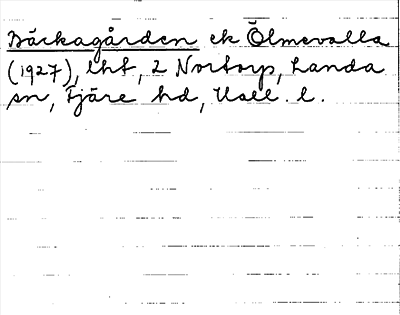 Bäckagården ek Ölmevalla
(1927), lht, 2 Nortorp, Landa
sn, Fjäre hd, Hall. l.